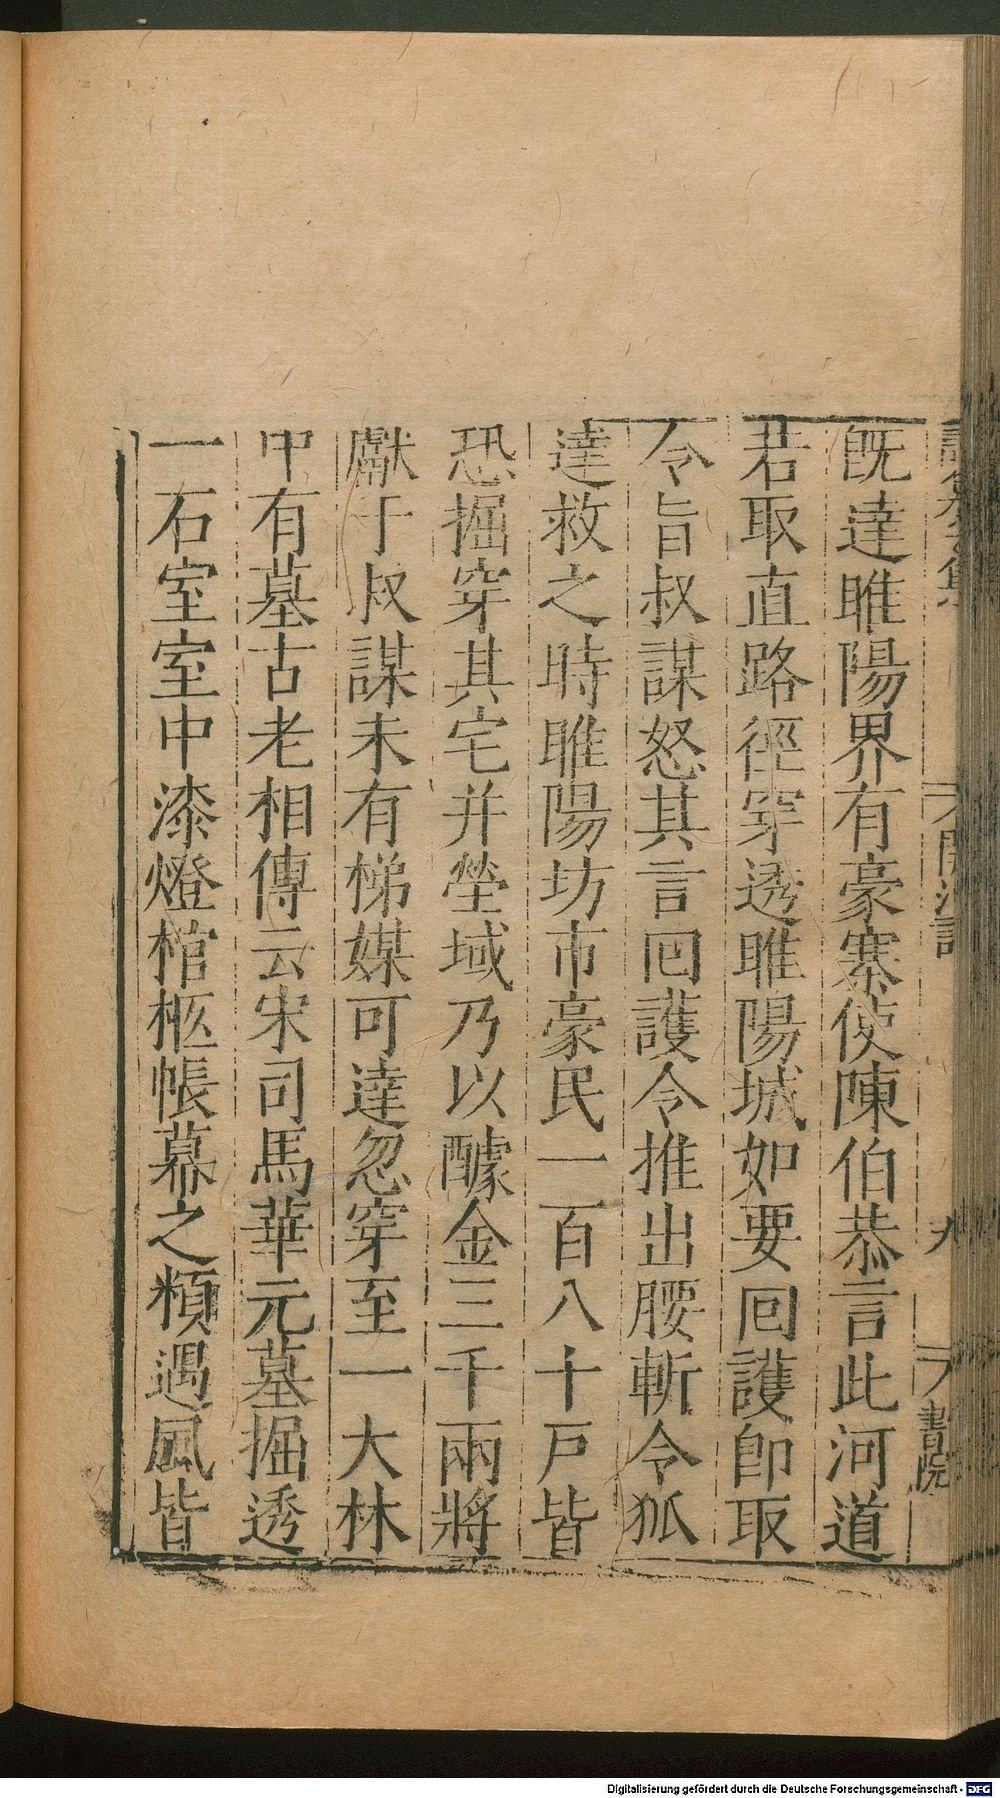 開河記
九
書院
旣達睢陽界有豪寨使陳伯恭言此河道
若取直路徑穿透睢陽城如要囘護卽取
令旨叔謀怒其言囘護令推出腰斬令狐
達救之時睢陽坊市豪民一百八十戸皆
恐掘穿其宅并塋域乃以醵金三千兩將
獻于叔謀未有梯媒可達忽穿至一大林
中有墓古老相傳云宋司馬華元墓掘透
一石室室中漆燈棺柩帳幕之類遇風皆
Digitalisierung gefördert durch die Deutsche Forschungsgemeinschaft - DFG